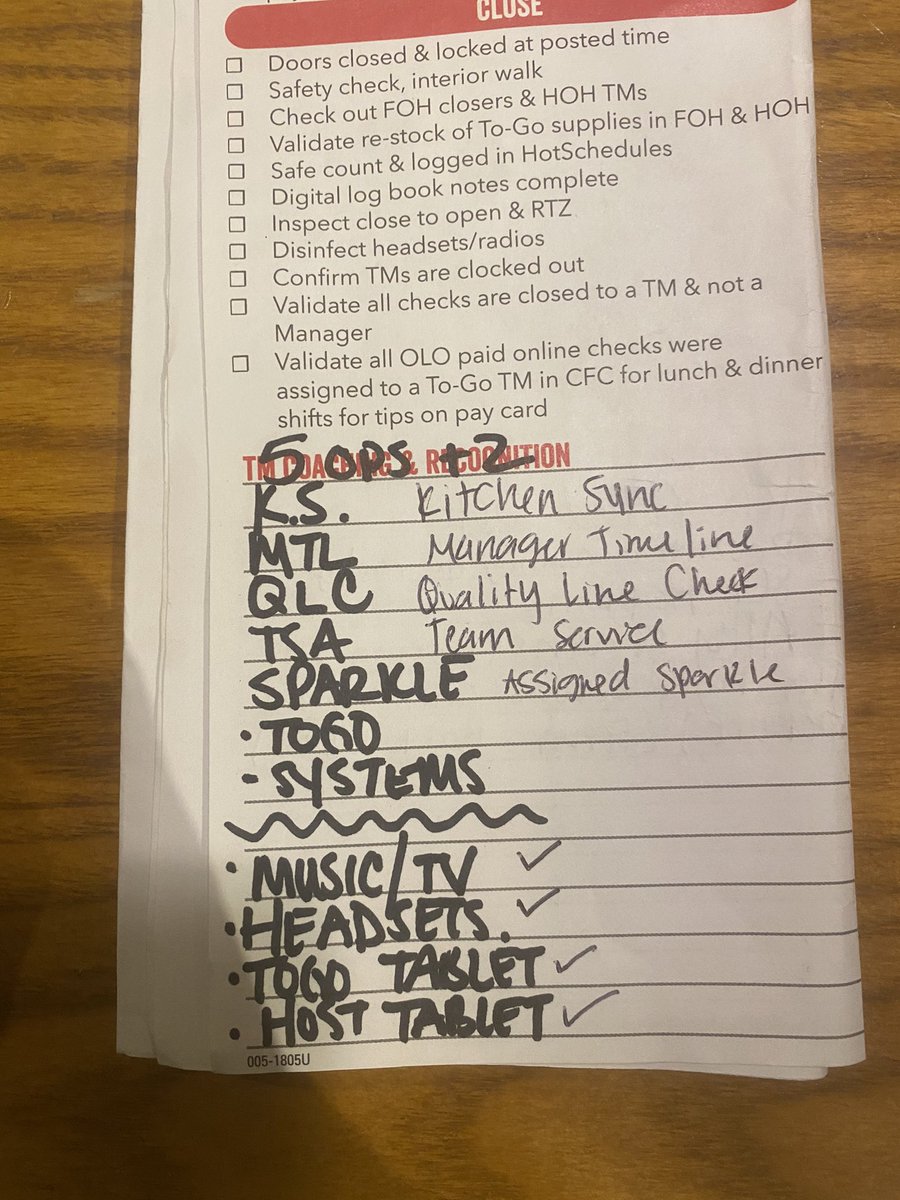 CLOSE
☐ Doors closed & locked at posted time
☐ Safety check, interior walk
☐ Check out FOH closers & HOH TMs
☐ Validate re-stock of To-Go supplies in FOH & HOH
☐ Safe count & logged in HotSchedules
☐ Digital log book notes complete
☐ Inspect close to open & RTZ
☐ Disinfect headsets/radios
☐ Confirm TMs are clocked out
☐ Validate all checks are closed to a TM & not a
Manager
☐ Validate all OLO paid online checks were
assigned to a To-Go TM in CFC for lunch & dinner
shifts for tips on pay card
5 ops + 2
TM COACHING & RECOGNITION
K.S. Kitchen Sync
MTL Manager Timeline
QLC Quality Line Check
TSA Team Service
SPARKLE Assigned Sparkle
• TOGO
- SYSTEMS
• MUSIC/TV ✓
• HEADSETS. ✓
• TOGO TABLET ✓
• HOST TABLET ✓
005-1805U